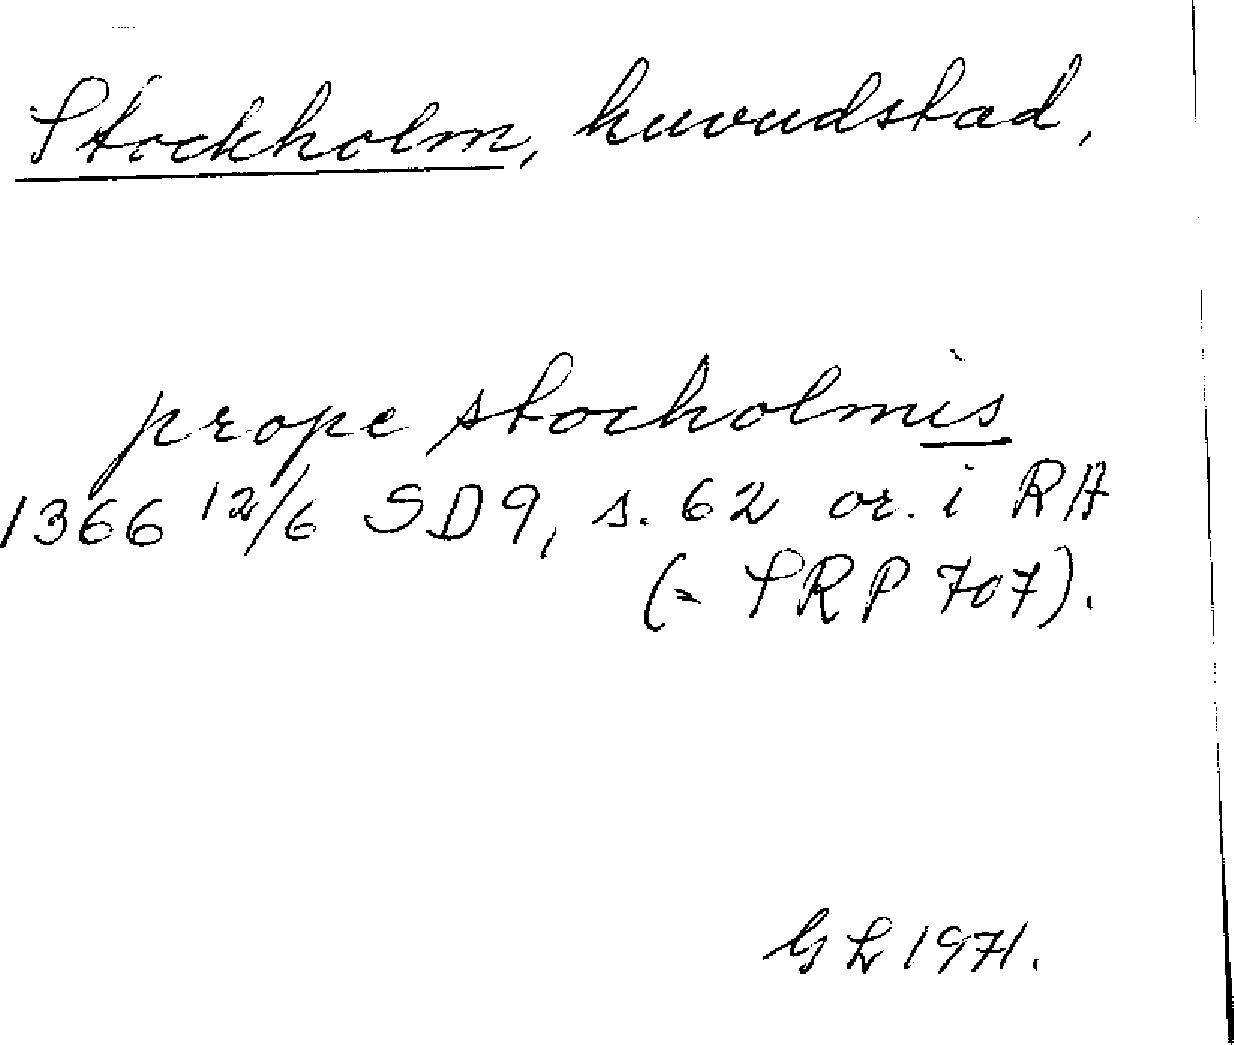 Stockholm, huvudstad,
prope stocholmis
1366 12/6 SD9, s. 62 or. i RA
(= SRP 707).
GL 1971.